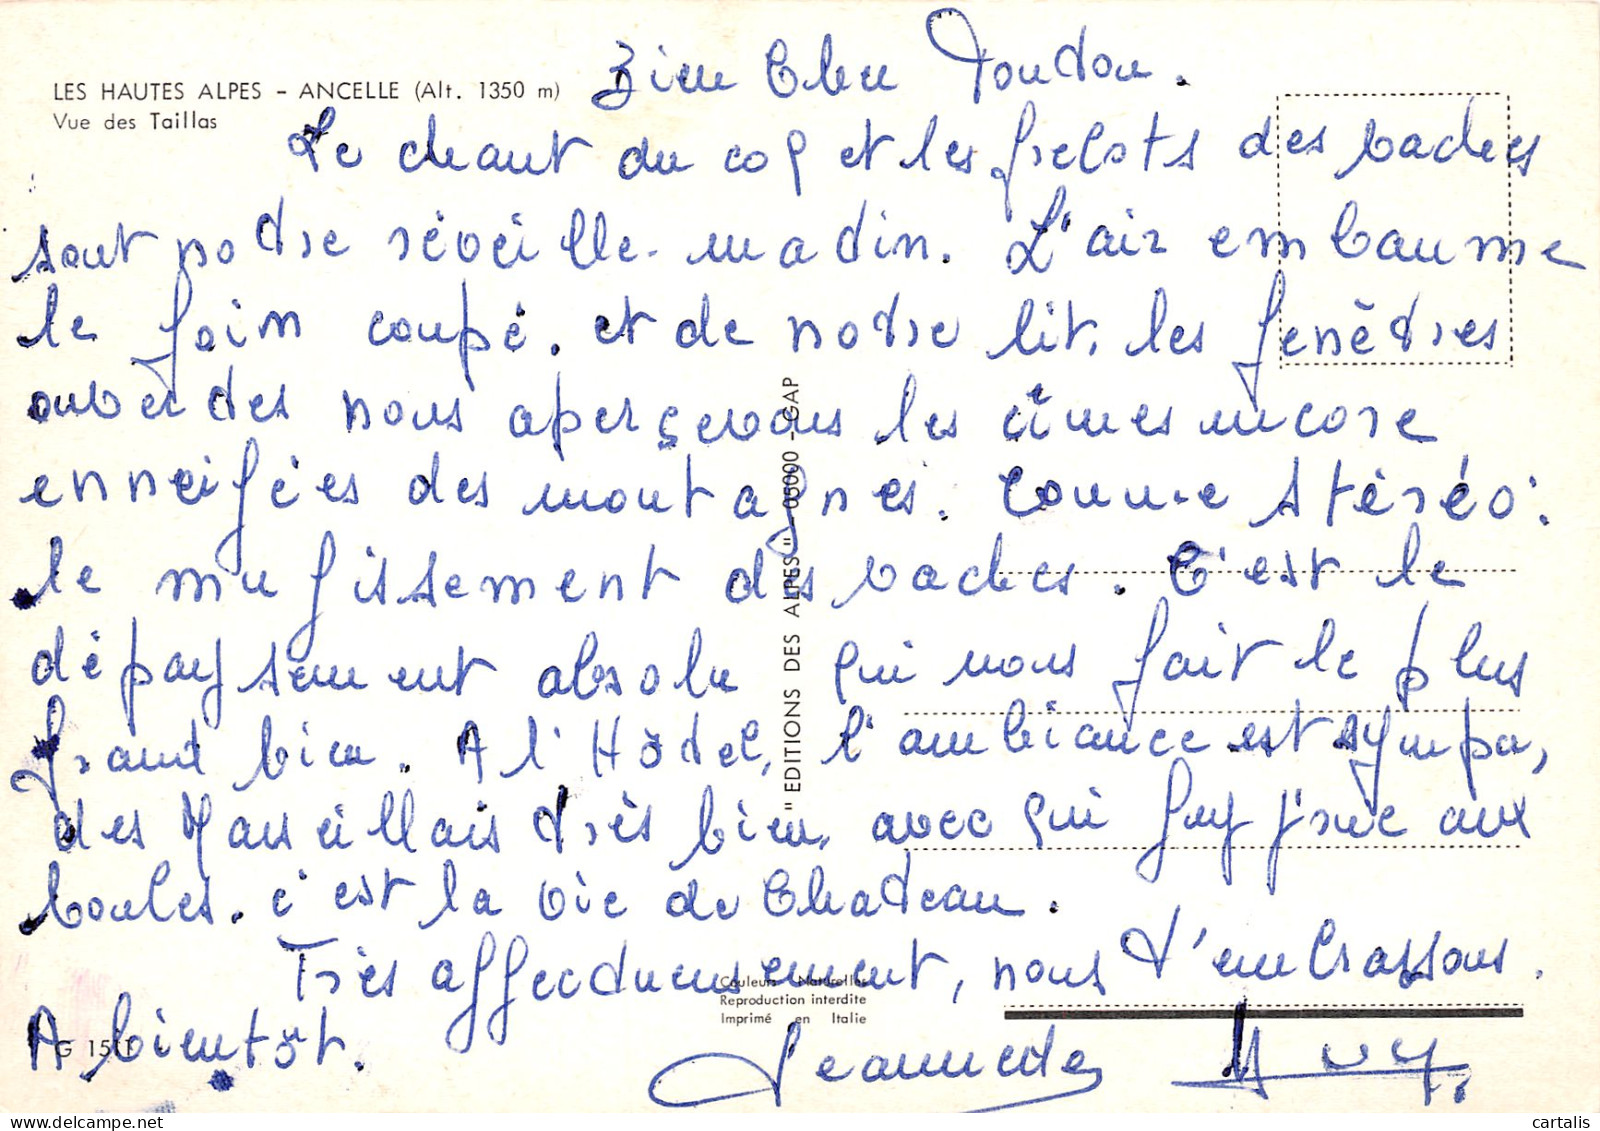 LES HAUTES ALPES - ANCELLE (Alt. 1350 m)
Vue des Taillas
Bien Cher Doudou.
Le chant du coq et les grelots des vaches
sont notre réveille-matin. L'air embaume
le foin coupé. et de notre lit, les fenêtres
ouvertes nous aperçevons les cîmes encore
enneigées des montagnes. Comme stéréo:
le mugissement des vaches. C'est le
dépaysement absolu qui nous fait le plus
grand bien. A l'Hôtel, l'ambiance est sympa,
des Marseillais très bien, avec qui Guy joue aux
boules. c'est la vie de Château.
Très affectueusement, nous t'embrassons.
A bientôt.
Jeannette Guy
"EDITIONS DES ALPES" - 05000 - GAP
Couleurs Naturelles
Reproduction interdite
Imprimé en Italie
cartalis